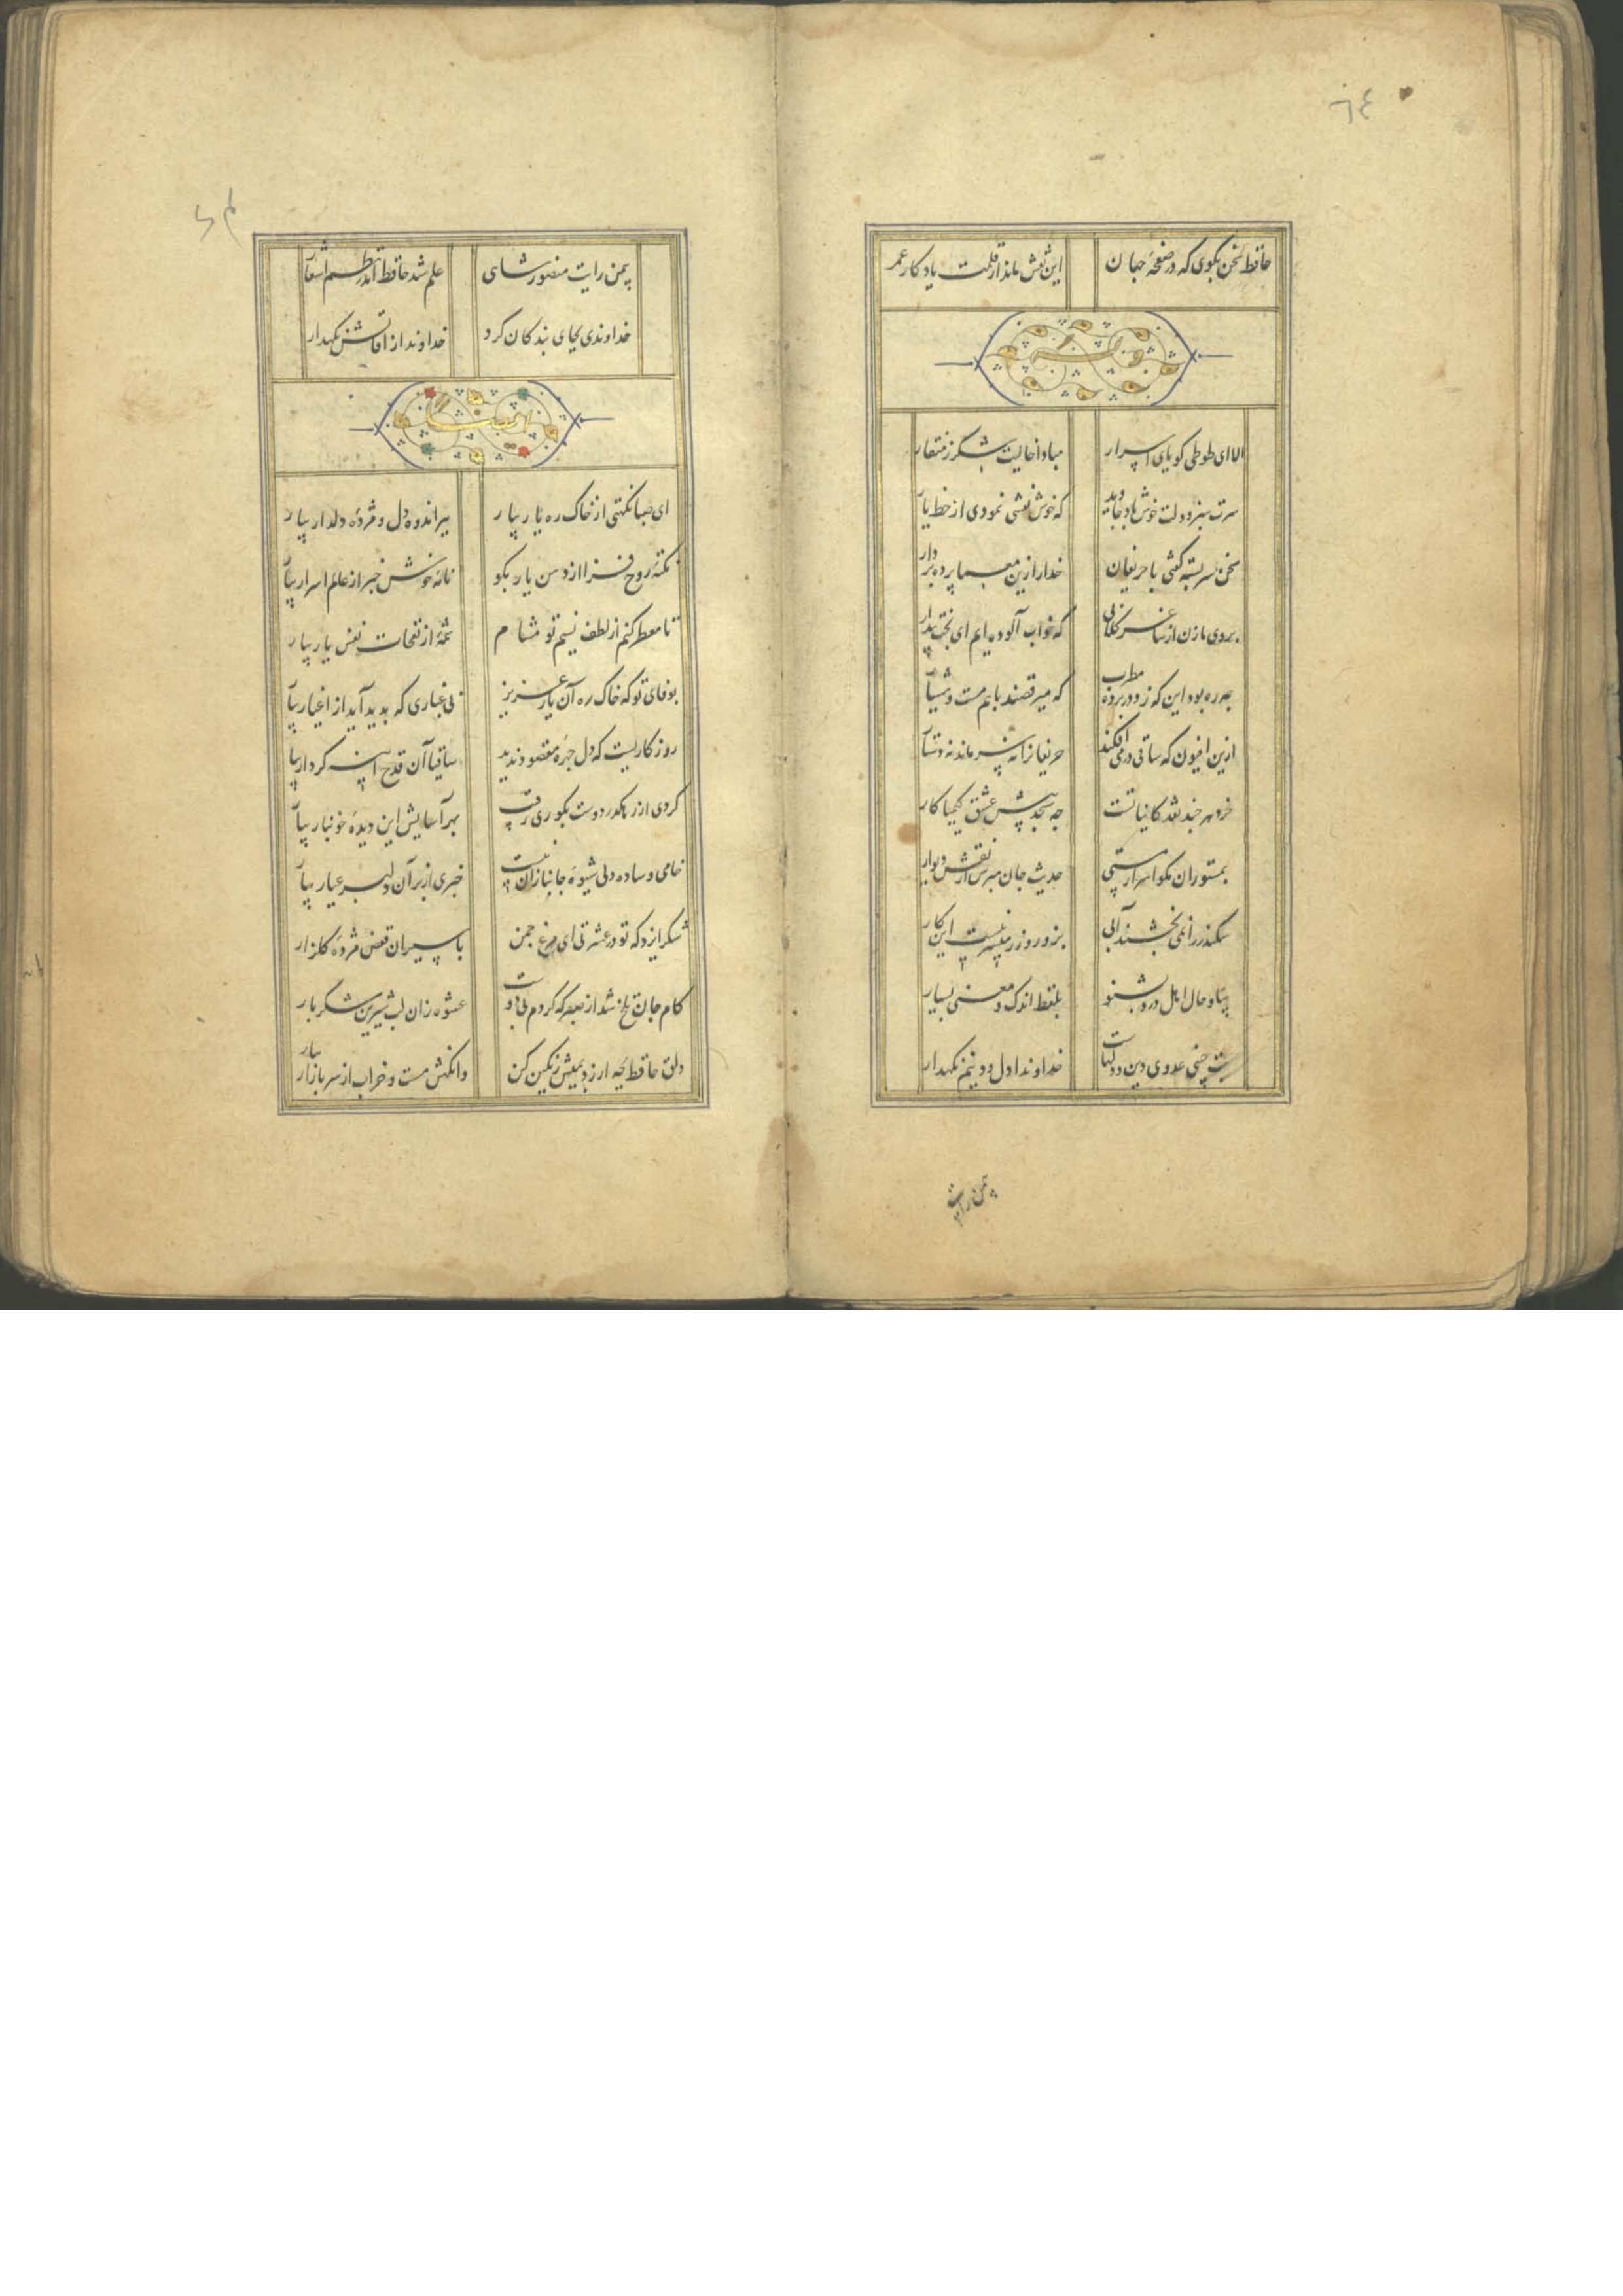 حافظ سخن بکوی که در صفحهٔ جهان این نقش ماند از قلمت یادکار عمر
الا ای طوطی کویای اسرار مبادا خالیت شکر ز منقار
سرت سبز و دولت خوش باد جاوید که خوش نقشی نمودی از خط یار
سخن سربسته کفتی با حریفان خدا را زین معما پرده بردار
بروی ما زن از ساغر کلابی که خواب آلوده ایم ای بخت بیدار
چه ره بود این که زد در پرده مطرب که میرقصند با هم مست و هشیار
ازین افیون که ساقی در می افکند حریفانرا نه سر ماند نه دستار
خرد هر چند نقد کایناتست چه سنجد پیش عشق کیمیا کار
بمستوران مکو اسرار مستی حدیث جان مپرس از نقش دیوار
سکندر را نمی بخشند آبی بزور و زر میسر نیست این کار
بیا و حال اهل درد بشنو بلفظ اندک و معنی بسیار
بت چینی عدوی دین و دلهاست خداوندا دل و دینم نکهدار
یمن رایت
یمن رایت منصور شاهی علم شد حافظ اندر نظم اشعار
خداوندی بجای بندکان کرد خداوندا ز آفاتش نکهدار
ای صبا نکهتی از خاک ره یار بیار ببر اندوه دل و مژدهٔ دلدار بیار
نکتهٔ روح فزا از دهن یار بکو نامهٔ خوش خبر از عالم اسرار بیار
تا معطر کنم از لطف نسیم تو مشام شمهٔ از نفحات نفس یار بیار
بوفای تو که خاک ره آن یار عزیز بی غباری که بدید آید از اغیار بیار
روزکاریست که دل چهرهٔ مقصود ندید ساقیا آن قدح آینه کردار بیار
کردی از رهکذر دوست بکوری رقیب بهر آسایش این دیدهٔ خونبار بیار
خامی و ساده دلی شیوهٔ جانبازان نیست خبری از بر آن دلبر عیار بیار
شکر ایزد که تو در عشرتی ای مرغ چمن باسیران قفس مژدهٔ کلزار
کام جان تلخ شد از صبر که کردم بی دوست عشوهٔ زان لب شیرین شکربار
دلق حافظ بچه ارزد بمیش رنکین کن وانکهش مست و خراب از سر بازار بیار